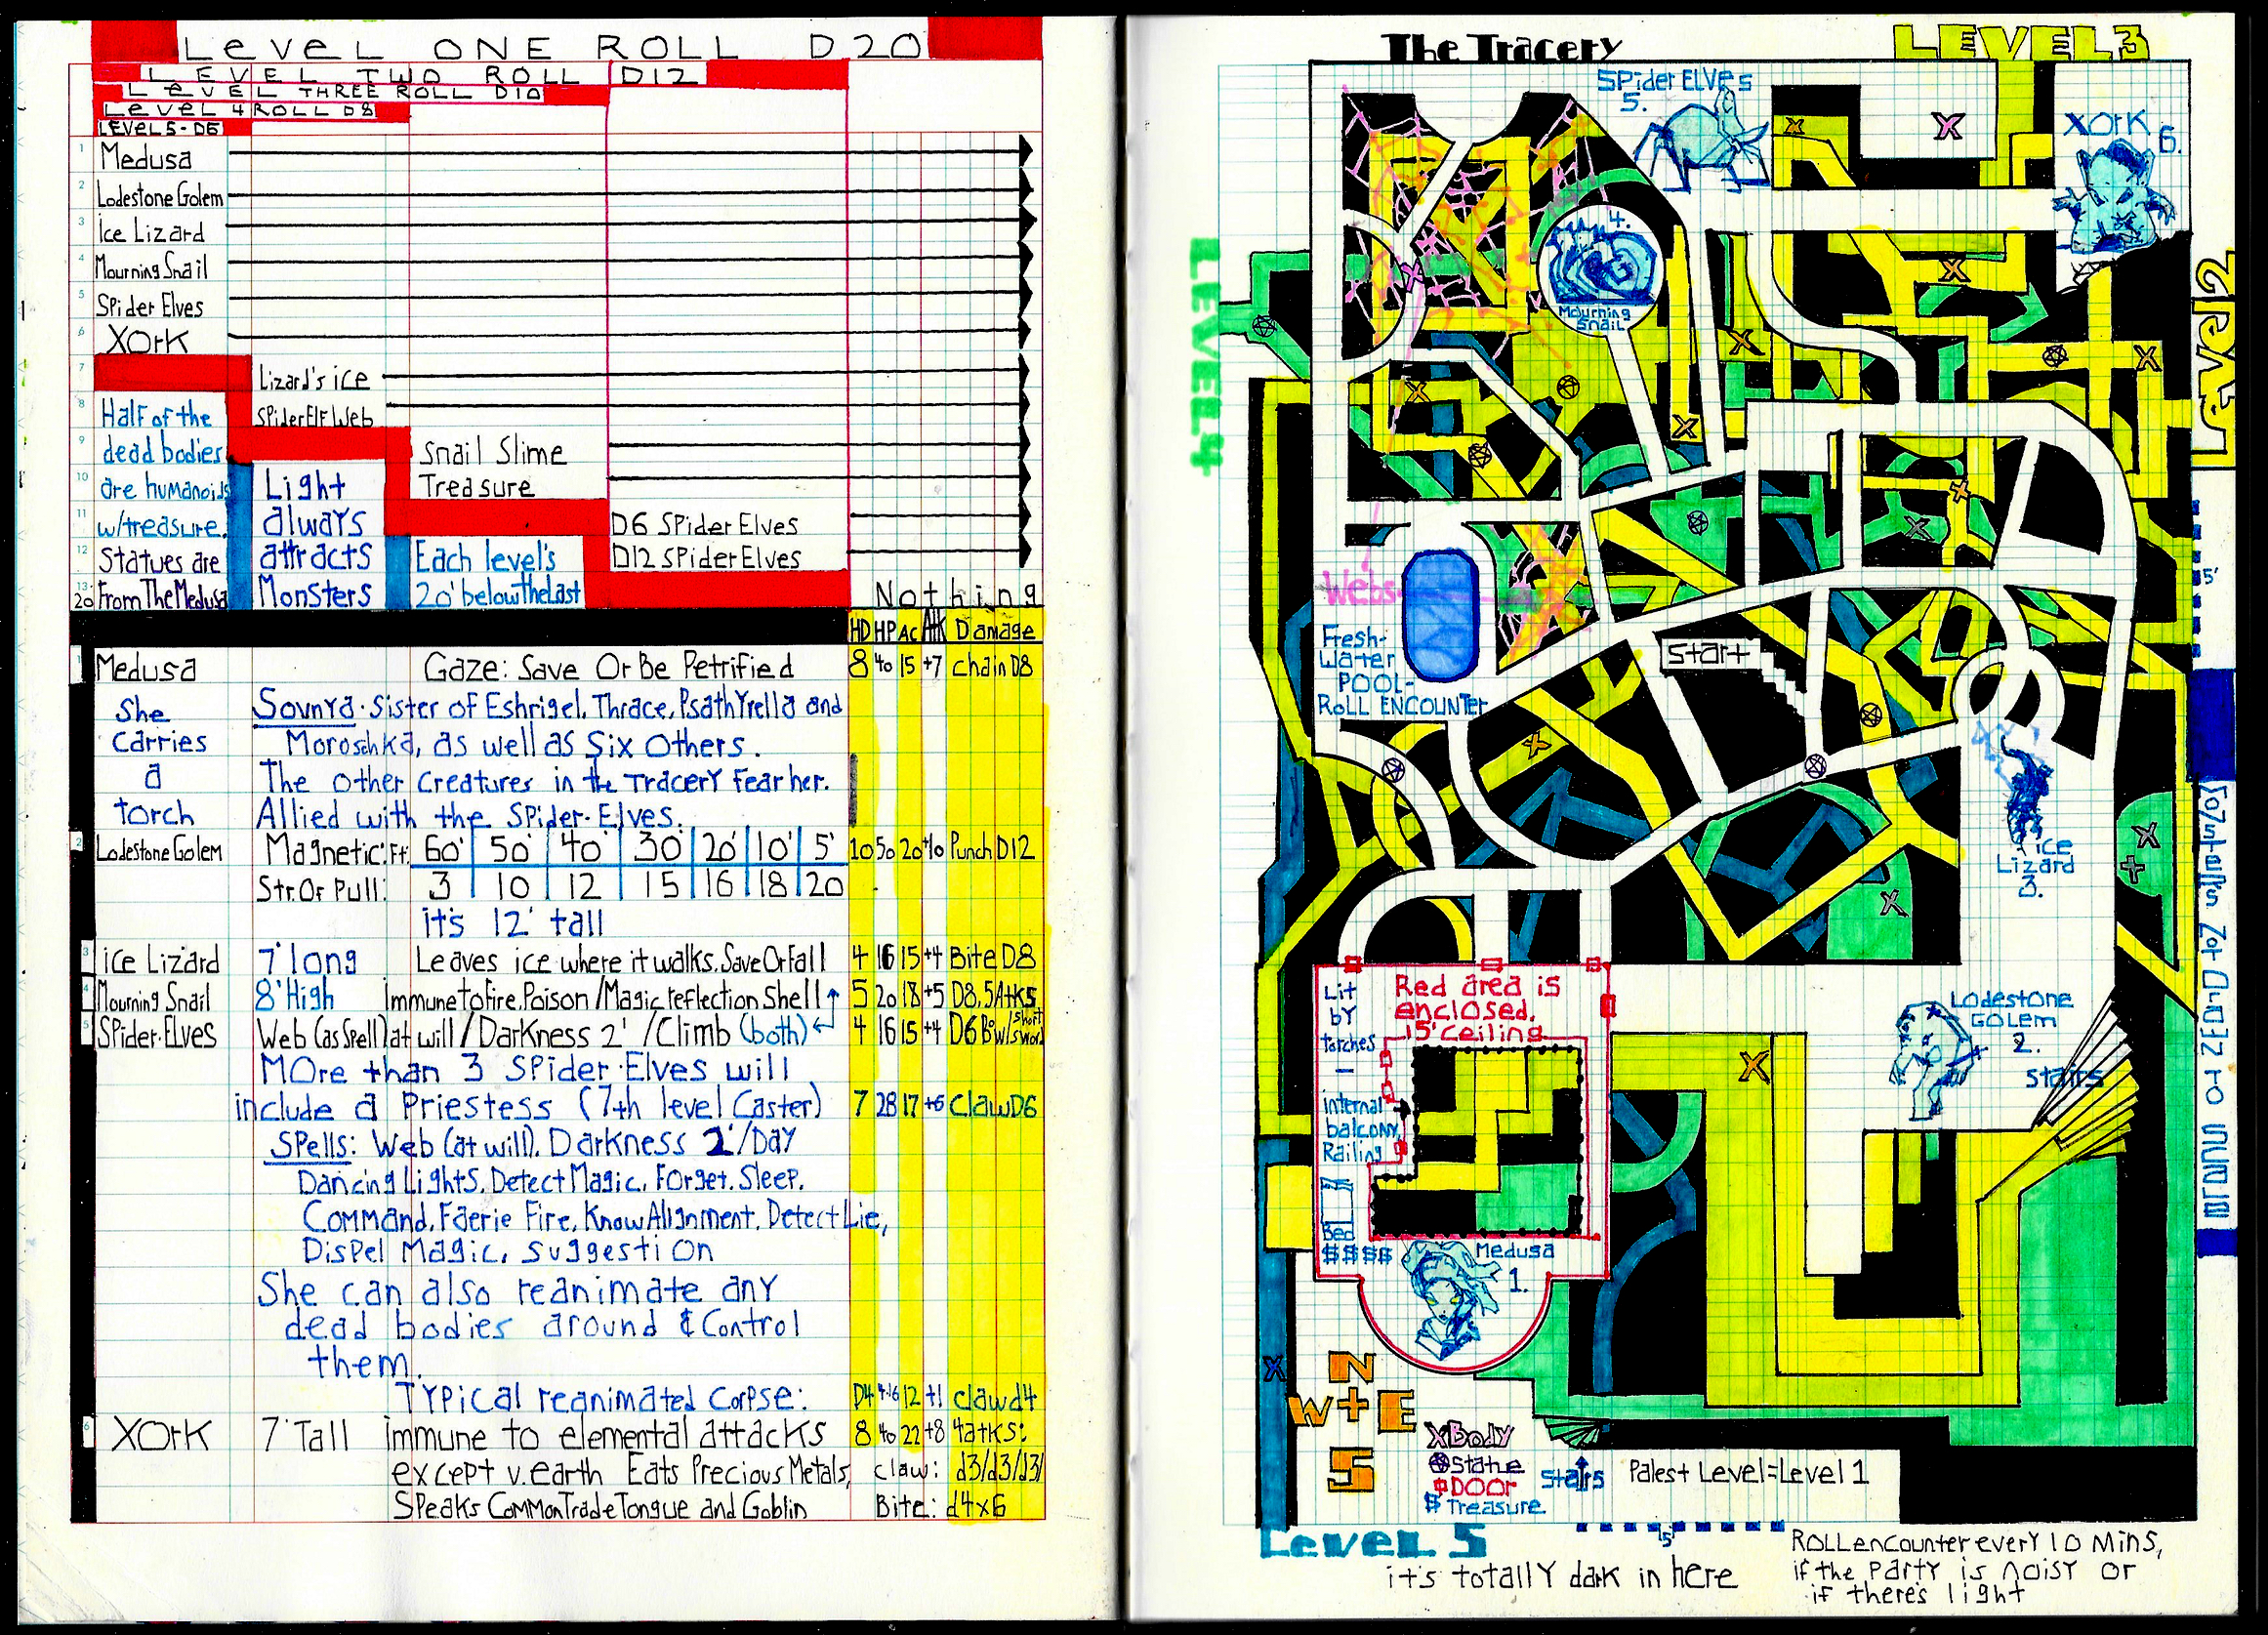 LeveL ONE ROLL D20
LEVEL TWO ROLL D12
LeVEL THREE ROLL D10
LeveL 4 ROLL D8
LEVEL 5-D6
1 Medusa
2 Lodestone Golem
3 Ice Lizard
4 Mourning Snail
5 Spider Elves
6 XOrK
7 Lizard's ice
8 SPiderElf Web
9 Snail Slime
10 Treasure
11 D6 SPider Elves
12 D12 SPider Elves
13-20 Nothing
Half of the
dead bodies
are humanoids
w/treasure.
Statues are
From The Medusa
Light
always
attracts
Monsters
Each level's
20' below the last
HD HP AC Atk Damage
1 Medusa Gaze: Save Or Be Petrified 8 40 15 +7 chain D8
She
carries
a
torch
Sovnya. Sister of Eshrigel, Thrace, Psathyrella and
Moroschka, as well as Six Others.
The other creatures in the Tracery Fear her.
Allied with the SPider-Elves.
2 Lodestone Golem Magnetic: Ft. 60' 50' 40' 30' 20' 10' 5' 10 50 20 +10 Punch D12
Str. Of Pull: 3 10 12 15 16 18 20
it's 12' tall
3 ice Lizard 7' long Leaves ice where it walks. Save Or Fall 4 16 15 +4 Bite D8
4 Mourning Snail 8' High immune to Fire, Poison / Magic reflection Shell 5 20 18 +5 D8, 5 Atks
5 SPider-Elves Web (as Spell) at will / Darkness 2' / Climb (both) 4 16 15 +4 D6 Bow/short sword
More than 3 SPider-Elves will
include a Priestess (7th level Caster) 7 28 17 +6 Claw D6
Spells: Web (at will), Darkness 2'/Day
Dancing Lights, Detect Magic, Forget, Sleep,
Command, Faerie Fire, Know Alignment, Detect Lie,
Dispel Magic, Suggestion
She can also reanimate any
dead bodies around & Control
them.
Typical reanimated Corpse: D4 4-16 12 +1 claw d4
6 XOrK 7' Tall immune to elemental attacks 8 40 22 +8 4 atks:
except v. earth Eats Precious Metals, claw: d3/d3/d3/
Speaks Common Trade Tongue and Goblin Bite: d4x6
The Tracery
LEVEL 3
SPider ELVes
5.
XOrK
6.
4.
Mourning
Snail
LEVEL 4
Level 2
5'
Webs
Fresh-
Water
POOL-
ROLL ENCOUNTER
Start
ice
Lizard
3.
Lit
by
torches
—
internal
balcony,
Railing
Red area is
enclosed.
15' ceiling
Bed
$$$$
Medusa
1.
LODestone
GOLem
2.
stairs
N
W+E
S
X Body
Statue
DOOr
$ Treasure
Stairs
Palest Level=Level 1
Level 5
15'
it's totally dark in here
ROLL encounter every 10 Mins,
if the Party is noisy or
if there's light